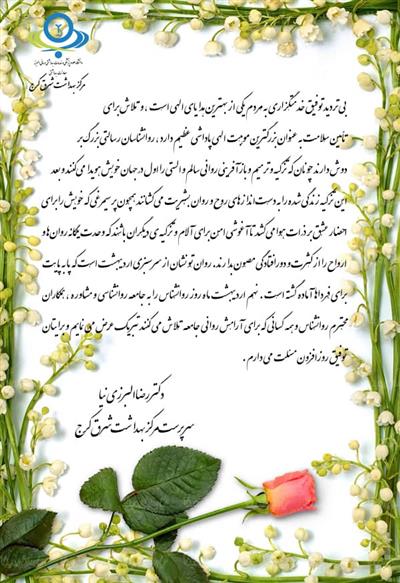 مرکز بهداشت شرق کرج
بی تردید توفیق خدمتگزاری به مردم یکی از بهترین هدایای الهی است ، و تلاش برای
تأمین سلامت به عنوان بزرگترین موهبت الهی پاداشی عظیم دارد ، روانشناسان رسالتی بزرگ بر
دوش دارند چونان که تزکیه و ترمیم و بازآفرینی روانی سالم و الهی را اول در جهان خویش هویدا می کنند و بعد
این تزکیه زندگی شده را به دست اندازهای روح و روان بشریت می کشانند همچون پر سیمرغی که خویش را برای
احضار عشق بر ذرات هوا می کشد تا آغوشی امن برای آلام و تزکیه ی دیگران باشند که وحدت یگانه روان ها و
ارواح را از کثرت و دور افتادگی مصون بدارند. روان نو نشان از سرسبزی اردیبهشت است که پا به پایت
برای فرداها آماده گشته است . نهم اردیبهشت ماه روز روانشناس را به جامعه روانشناسی و مشاوره ، همکاران
محترم روانشناس و همه کسانی که برای آرامش روانی جامعه تلاش می کنند تبریک عرض می نمایم و برایتان
توفیق روز افزون مسئلت می دارم .
دکتر رضا البرزی نیا
سرپرست مرکز بهداشت شرق کرج